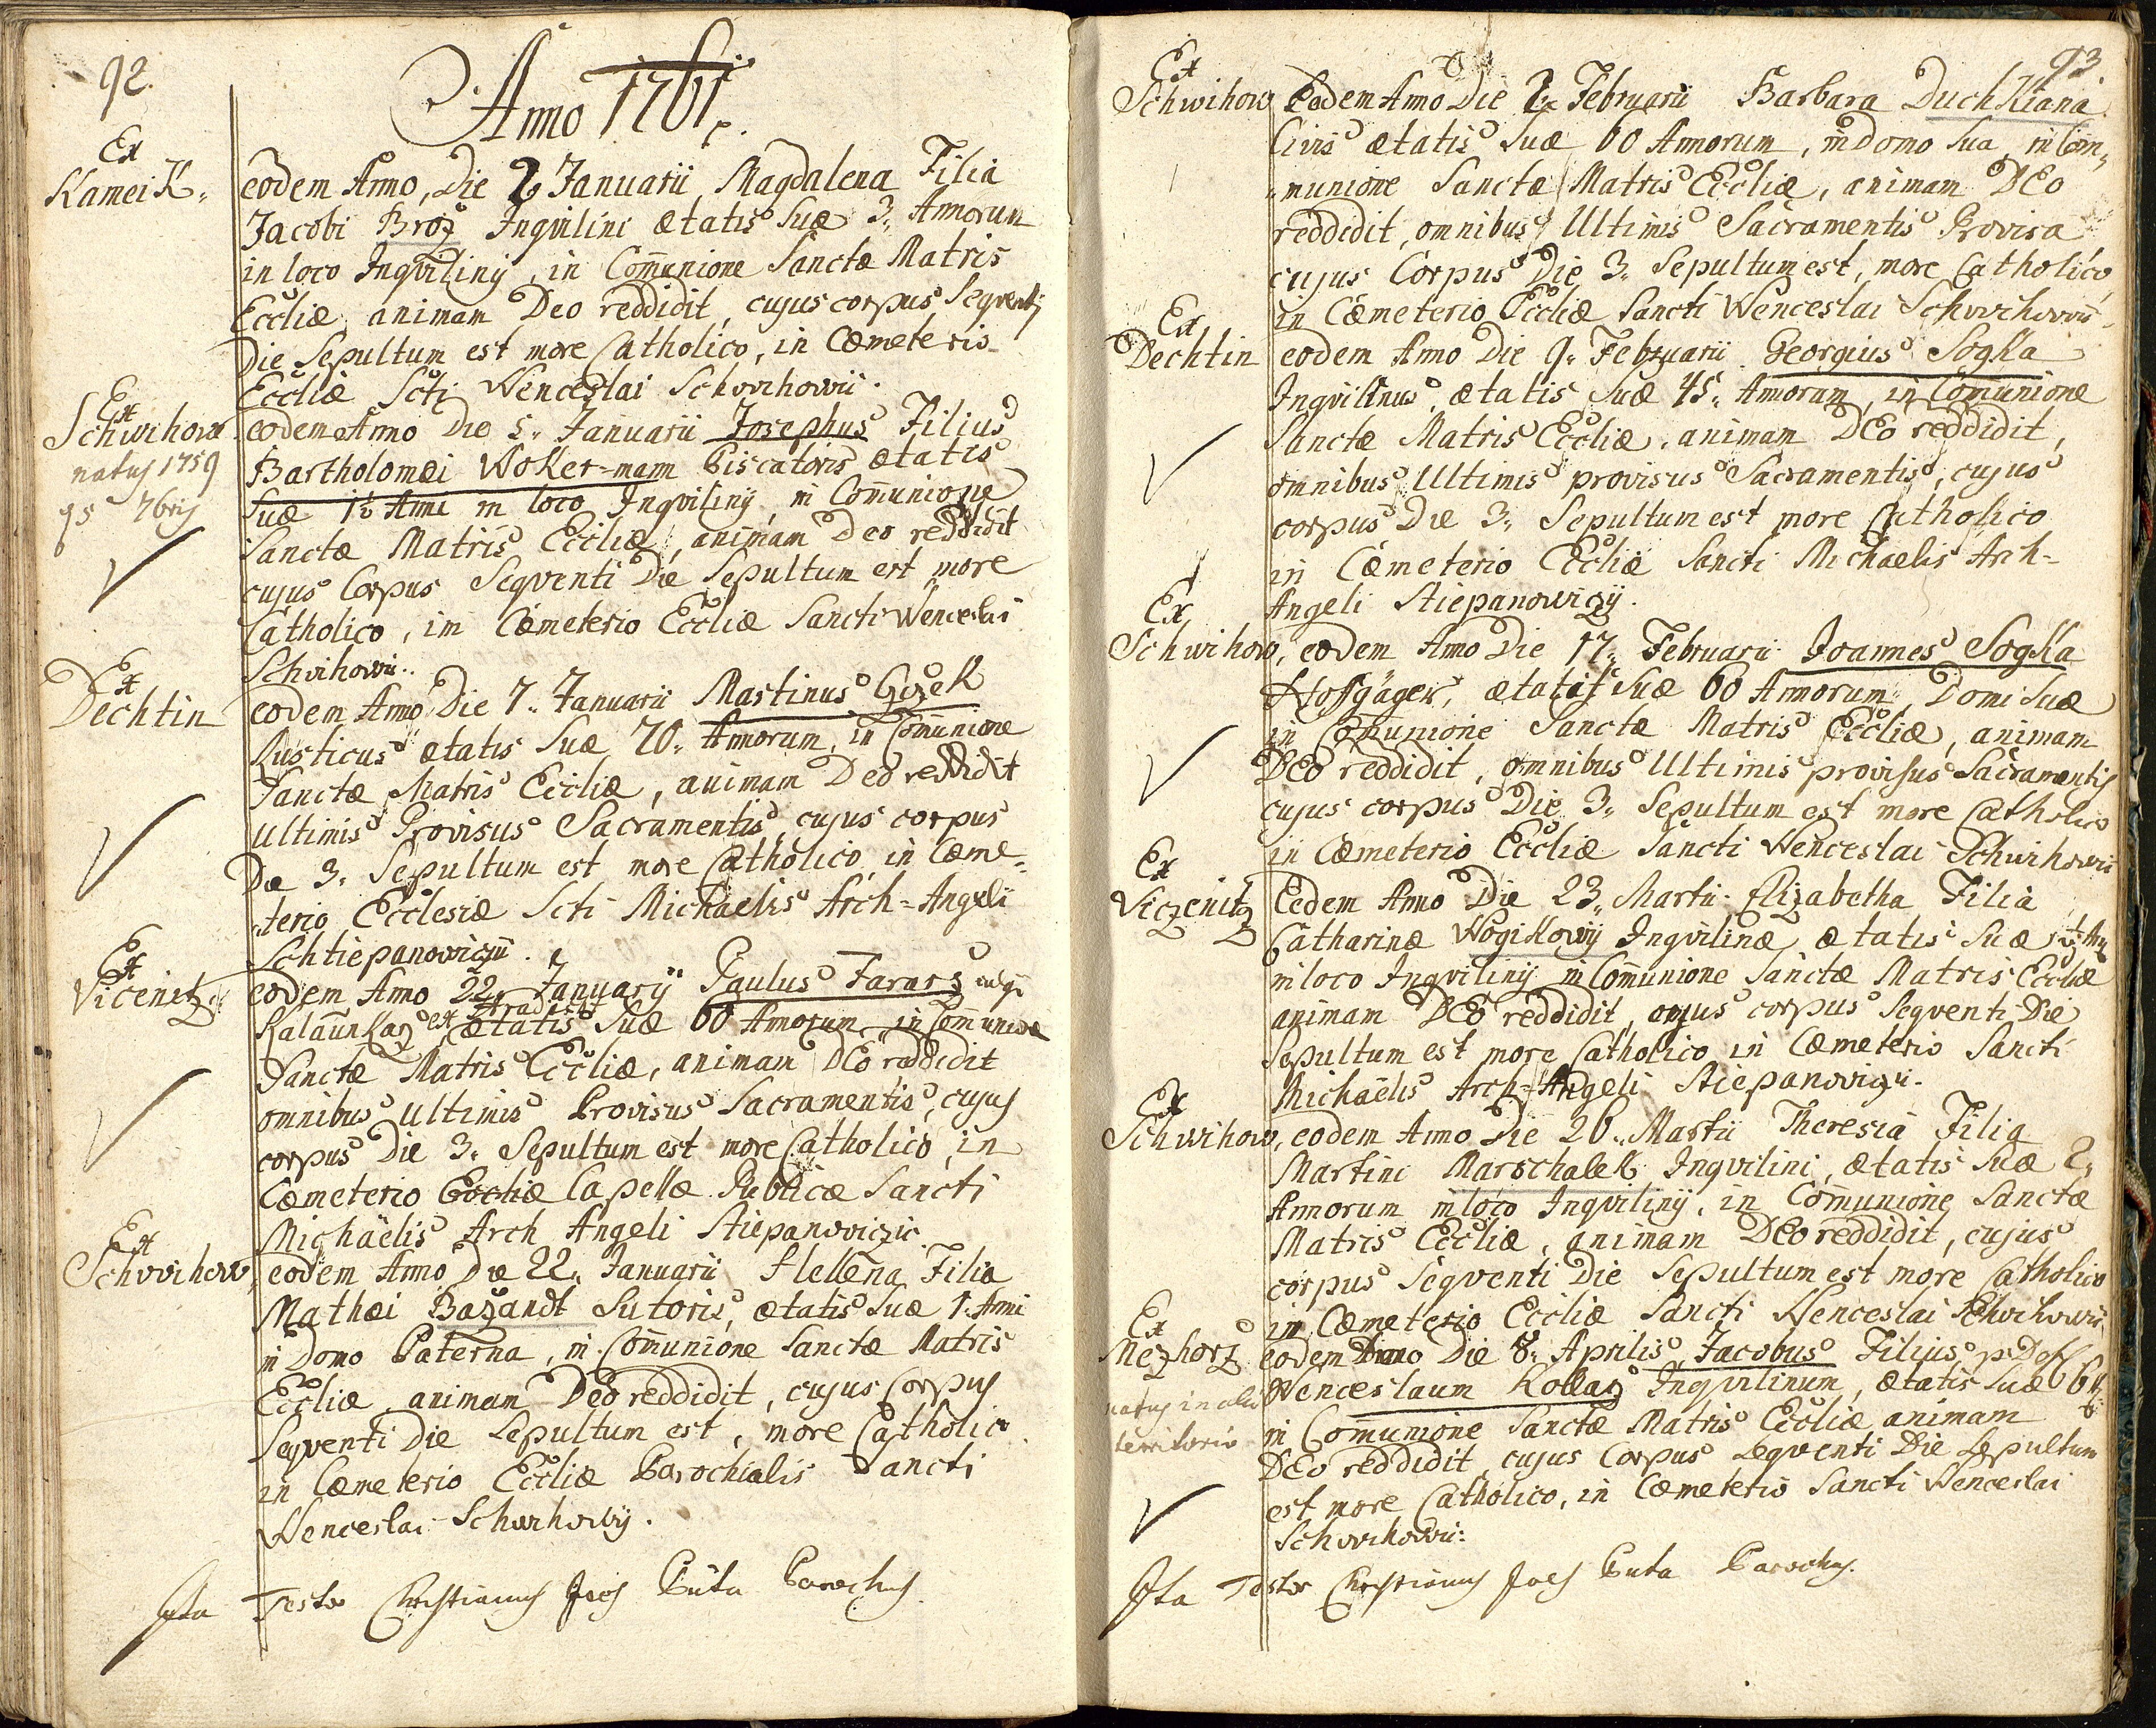 92.
Anno 1761.
Ex
Kameik.
eodem Anno, Die 2 Januarii Magdalena Filia
Jacobi Broz Inqvilini ætatis suæ 3. Annorum
in loco Inqviliny, in Com̃unione Sanctæ Matris
Eccliæ animam Deo reddidit, cujus corpus Seqventi
Die Sepultum est more Catholico, in Cœmeterio
Eccliæ Scti Wenceslai Schwihowii.
Ex
Schwihow
natus 1759
7bris
eodem Anno Die 5. Januarii Josephus Filius
Bartholomæi Woker=mann Piscatoris ætatis
Suæ Anni in loco Inqviliny, in Com̃unione
Sanctæ Matris Eccliæ, animam Deo reddidit
cujus Corpus Seqventi Die Sepultum est more
Catholico, in Cœmeterio Eccliæ Sancti Wenceslai
Schwihowii.
Ex
Dechtin
eodem Anno Die 7. Januarii Martinus
Rusticus ætatis Suæ 70. Annorum, in Com̃unione
Sanctæ Matris Eccliæ, animam Deo reddidit
Ultimis Provisus Sacramentis, cujus corpus
Die 3. Sepultum est more Catholico in Cœme=
terio Ecclesiæ Scti Michaelis Arch=Angeli
Schtiepanowiczii.
Ex
Vicenitz.
eodem Anno 22. Januarij Paulus
ex ætatis Suæ 60 Annorum in Com̃unione
Sanctæ Matris Eccliæ, animam DEo reddidit
omnibus Ultimis Provisus Sacramentis, cujus
corpus Die 3. Sepultum est more Catholico, in
Cœmeterio Eccliæ Capellæ Publicæ Sancti
Michaëlis Arch Angeli Stiepanoviczii
Ex
Schwihow,
eodem Anno Die 22. Januarii Hellena Filia
Mathæi Bazandt Sutoris, ætatis Suæ 1. Anni
in Domo Paterna, in Com̃unione Sanctæ Matris
Eccliæ, animam Deo reddidit, cujus Corpus
Seqventi Die Sepultum est, more Catholico
in Cœmeterio Eccliæ Parochialis Sancti
Wenceslai Schwihowij.
Ita Testor Christianus Buta Parochus.
93.
Ex
Schwihow
Eodem Anno Die 2. Februarii Barbara Duchkiana
Civis ætatis Suæ 60 Annorum, in Domo Sua, in Com=
=munione Sanctæ Matris Eccliæ, animam DEo
reddidit, omnibus Ultimis Sacramentis Provisa
cujus Corpus Die 3. Sepultum est, more Catholico
in Cœmeterio Eccliæ Sancti Wenceslai Schwihowii
Ex
Dechtin
eodem Anno Die 9. Februarii Georgius Sogka
Inqvilinus, ætatis Suæ 45. Annorum, in Com̃unione
Sanctæ Matris Eccliæ, animam DEo reddidit,
omnibus Ultimis provisus Sacramentis, cujus
corpus Die 3. Sepultum est more Catholico
in Cœmeterio Eccliæ Sancti Michaelis Arch=
Angeli Stiepanowiczij.
Ex
Schwihow,
eodem Anno Die 17. Februarii Joannes Sogka
Hoffgäger, ætatis Suæ 60 Annorum, Domi Suæ
in Com̃unione Sanctæ Matris Eccliæ, animam
DEo reddidit, omnibus Ultimis provisus Sacramentis
cujus corpus Die 3. Sepultum est more Catholico
in Cœmeterio Eccliæ Sancti Wenceslai Schwihowii
Ex
Viczenitz
Eodem Anno Die 23. Martii Elizabetha Filia
Catharinæ Wogikowij Inqvilinæ ætatis Suæ
in loco Inqviliny in Com̃unione Sanctæ Matris Eccliæ
animam DEo reddidit, cujus corpus Seqventi Die
Sepultum est more Catholico in Cœmeterio Sancti
Michaëlis Arch=Angeli Stiepanoviczii.
Ex
Schwihow,
eodem Anno Die 26. Martii Theresia Filia
Martini Marschalek Inqvilini, ætatis Suæ 2.
Annorum in loco Inqviliny, in Com̃unione Sanctæ
Matris Eccliæ, animam DEo reddidit, cujus
corpus Seqventi Die Sepultum est more Catholico
in Cœmeterio Eccliæ Sancti Wenceslai Schwihowii
Ex
Mezhorz
natus in alio
territorio
eodem Anno Die 8. Aprilis Jacobus Filius
Wenceslaum Kollarz Inqvilinum, ætatis Suæ
in Com̃unione Sanctæ Matris Eccliæ animam
DEo reddidit, cujus Corpus Seqventi Die Sepultum
est more Catholico, in Cœmeterio Sancti Wenceslai
Schwihowii:
Ita Testor Christianus Buta Parochus.